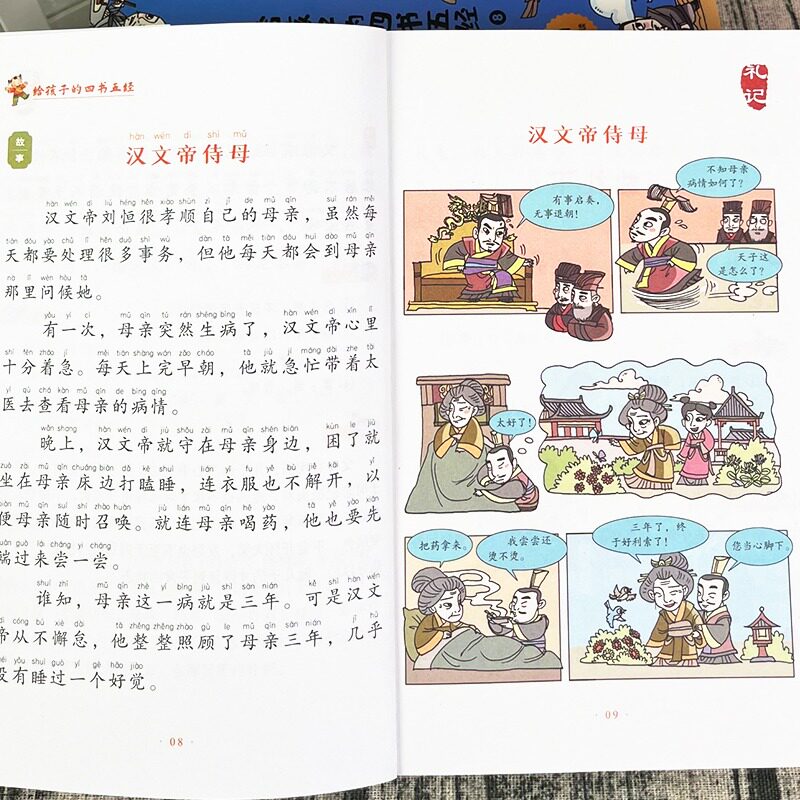 四书五经
8
给孩子的四书五经
故事
hàn wén dì shì mǔ
汉文帝侍母
hàn wén dì liú héng hěn xiào shùn zì jǐ de mǔ qīn suī rán měi
汉文帝刘恒很孝顺自己的母亲，虽然每
tiān dōu yào chǔ lǐ hěn duō shì wù dàn tā měi tiān dōu huì dào mǔ qīn
天都要处理很多事务，但他每天都会到母亲
nà lǐ wèn hòu tā
那里问候她。
yǒu yí cì mǔ qīn tū rán shēng bìng le hàn wén dì xīn lǐ
有一次，母亲突然生病了，汉文帝心里
shí fēn zháo jí měi tiān shàng wán zǎo cháo tā jiù jí máng dài zhe tài
十分着急。每天上完早朝，他就急忙带着太
yī qù chá kàn mǔ qīn de bìng qíng
医去查看母亲的病情。
wǎn shang hàn wén dì jiù shǒu zài mǔ qīn shēn biān kùn le jiù
晚上，汉文帝就守在母亲身边，困了就
zuò zài mǔ qīn chuáng biān dǎ kē shuì lián yī fu yě bù jiě kāi yǐ
坐在母亲床边打瞌睡，连衣服也不解开，以
biàn mǔ qīn suí shí zhào huàn jiù lián mǔ qīn hē yào tā yě yào xiān
便母亲随时召唤。就连母亲喝药，他也要先
duān guò lái cháng yi cháng
端过来尝一尝。
shuí zhī mǔ qīn zhè yí bìng jiù shì sān nián kě shì hàn wén
谁知，母亲这一病就是三年。可是汉文
dì cóng bú xiè dài tā zhěng zhěng zhào gù le mǔ qīn sān nián jī hū
帝从不懈怠，他整整照顾了母亲三年，几乎
méi yǒu shuì guò yí gè hǎo jiào
没有睡过一个好觉。
08
礼记
汉文帝侍母
有事启奏，
无事退朝！
不知母亲
病情如何了？
天子这
是怎么了？
太好了！
把药拿来。
我尝尝还
烫不烫。
三年了，终
于好利索了！
您当心脚下。
09